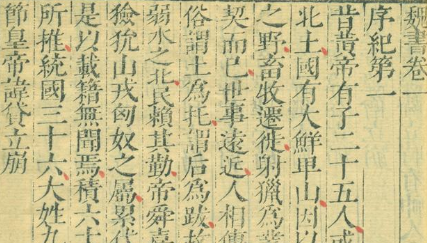 魏書卷一
序紀第一
昔黃帝有子二十五人或
北土國有大鮮卑山因以
之野畜牧遷徙射獵為業
契而已世事遠近人相傳
俗謂土為托謂后為跋故
弱水之北民賴其勤帝舜嘉
獫狁山戎匈奴之屬累代
是以載籍無聞焉積六十
所推統國三十六大姓九
節皇帝諱貸立崩